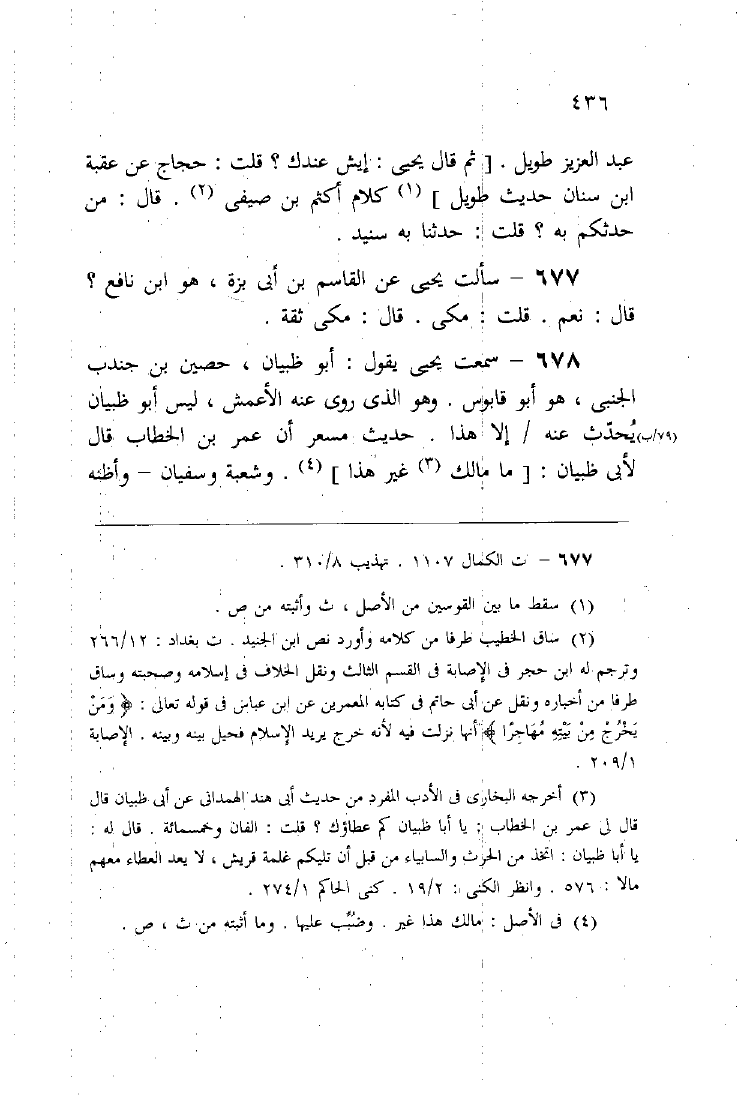 ٤٣٦
عبد العزيز طويل . [ ثم قال يحيى : إيش عندك ؟ قلت : حجاج عن عقبة
ابن سنان حديث طويل ] (١) كلام أكثم بن صيفى (٢) . قال : من
حدثكم به ؟ قلت : حدثنا به سنيد .
٦٧٧ – سألت يحيى عن القاسم بن أبى بزة ، هو ابن نافع ؟
قال : نعم . قلت : مكى . قال : مكى ثقة .
٦٧٨ – سمعت يحيى يقول : أبو ظبيان ، حصين بن جندب
الجنبى ، هو أبو قابوس . وهو الذى روى عنه الأعمش ، ليس أبو ظبيان
يُحدّث عنه / إلا هذا . حديث مسعر أن عمر بن الخطاب قال (٧٩/ب)
لأبى ظبيان : [ ما مالك (٣) غير هذا ] (٤) . وشعبة وسفيان – وأظنه
٦٧٧ – ت الكمال ١١٠٧ . تهذيب ٣١٠/٨ .
(١) سقط ما بين القوسين من الأصل ، ث وأثبته من ص .
(٢) ساق الخطيب طرفا من كلامه وأورد نص ابن الجنيد . ت بغداد : ٢٦٦/١٢
وترجم له ابن حجر فى الإصابة فى القسم الثالث ونقل الخلاف فى إسلامه وصحبته وساق
طرفا من أخباره ونقل عن أبى حاتم فى كتابه المعمرين عن ابن عباس فى قوله تعالى : ﴿ وَمَنْ
يَخْرُجْ مِنْ بَيْتِهِ مُهَاجِرًا ﴾ أنها نزلت فيه لأنه خرج يريد الإسلام فحيل بينه وبينه . الإصابة
٢٠٩/١ .
(٣) أخرجه البخارى فى الأدب المفرد من حديث أبى هند الهمدانى عن أبى ظبيان قال
قال لى عمر بن الخطاب : يا أبا ظبيان كم عطاؤك ؟ قلت : الفان وخمسمائة . قال له :
يا أبا ظبيان : اتخذ من الحرث والسابياء من قبل أن تليكم غلمة قريش ، لا يعد العطاء معهم
مالا : ٥٧٦ . وانظر الكنى : ١٩/٢ . كنى الحاكم ٢٧٤/١ .
(٤) فى الأصل : مالك هذا غير . وضُبِّب عليها . وما أثبته من ث ، ص .